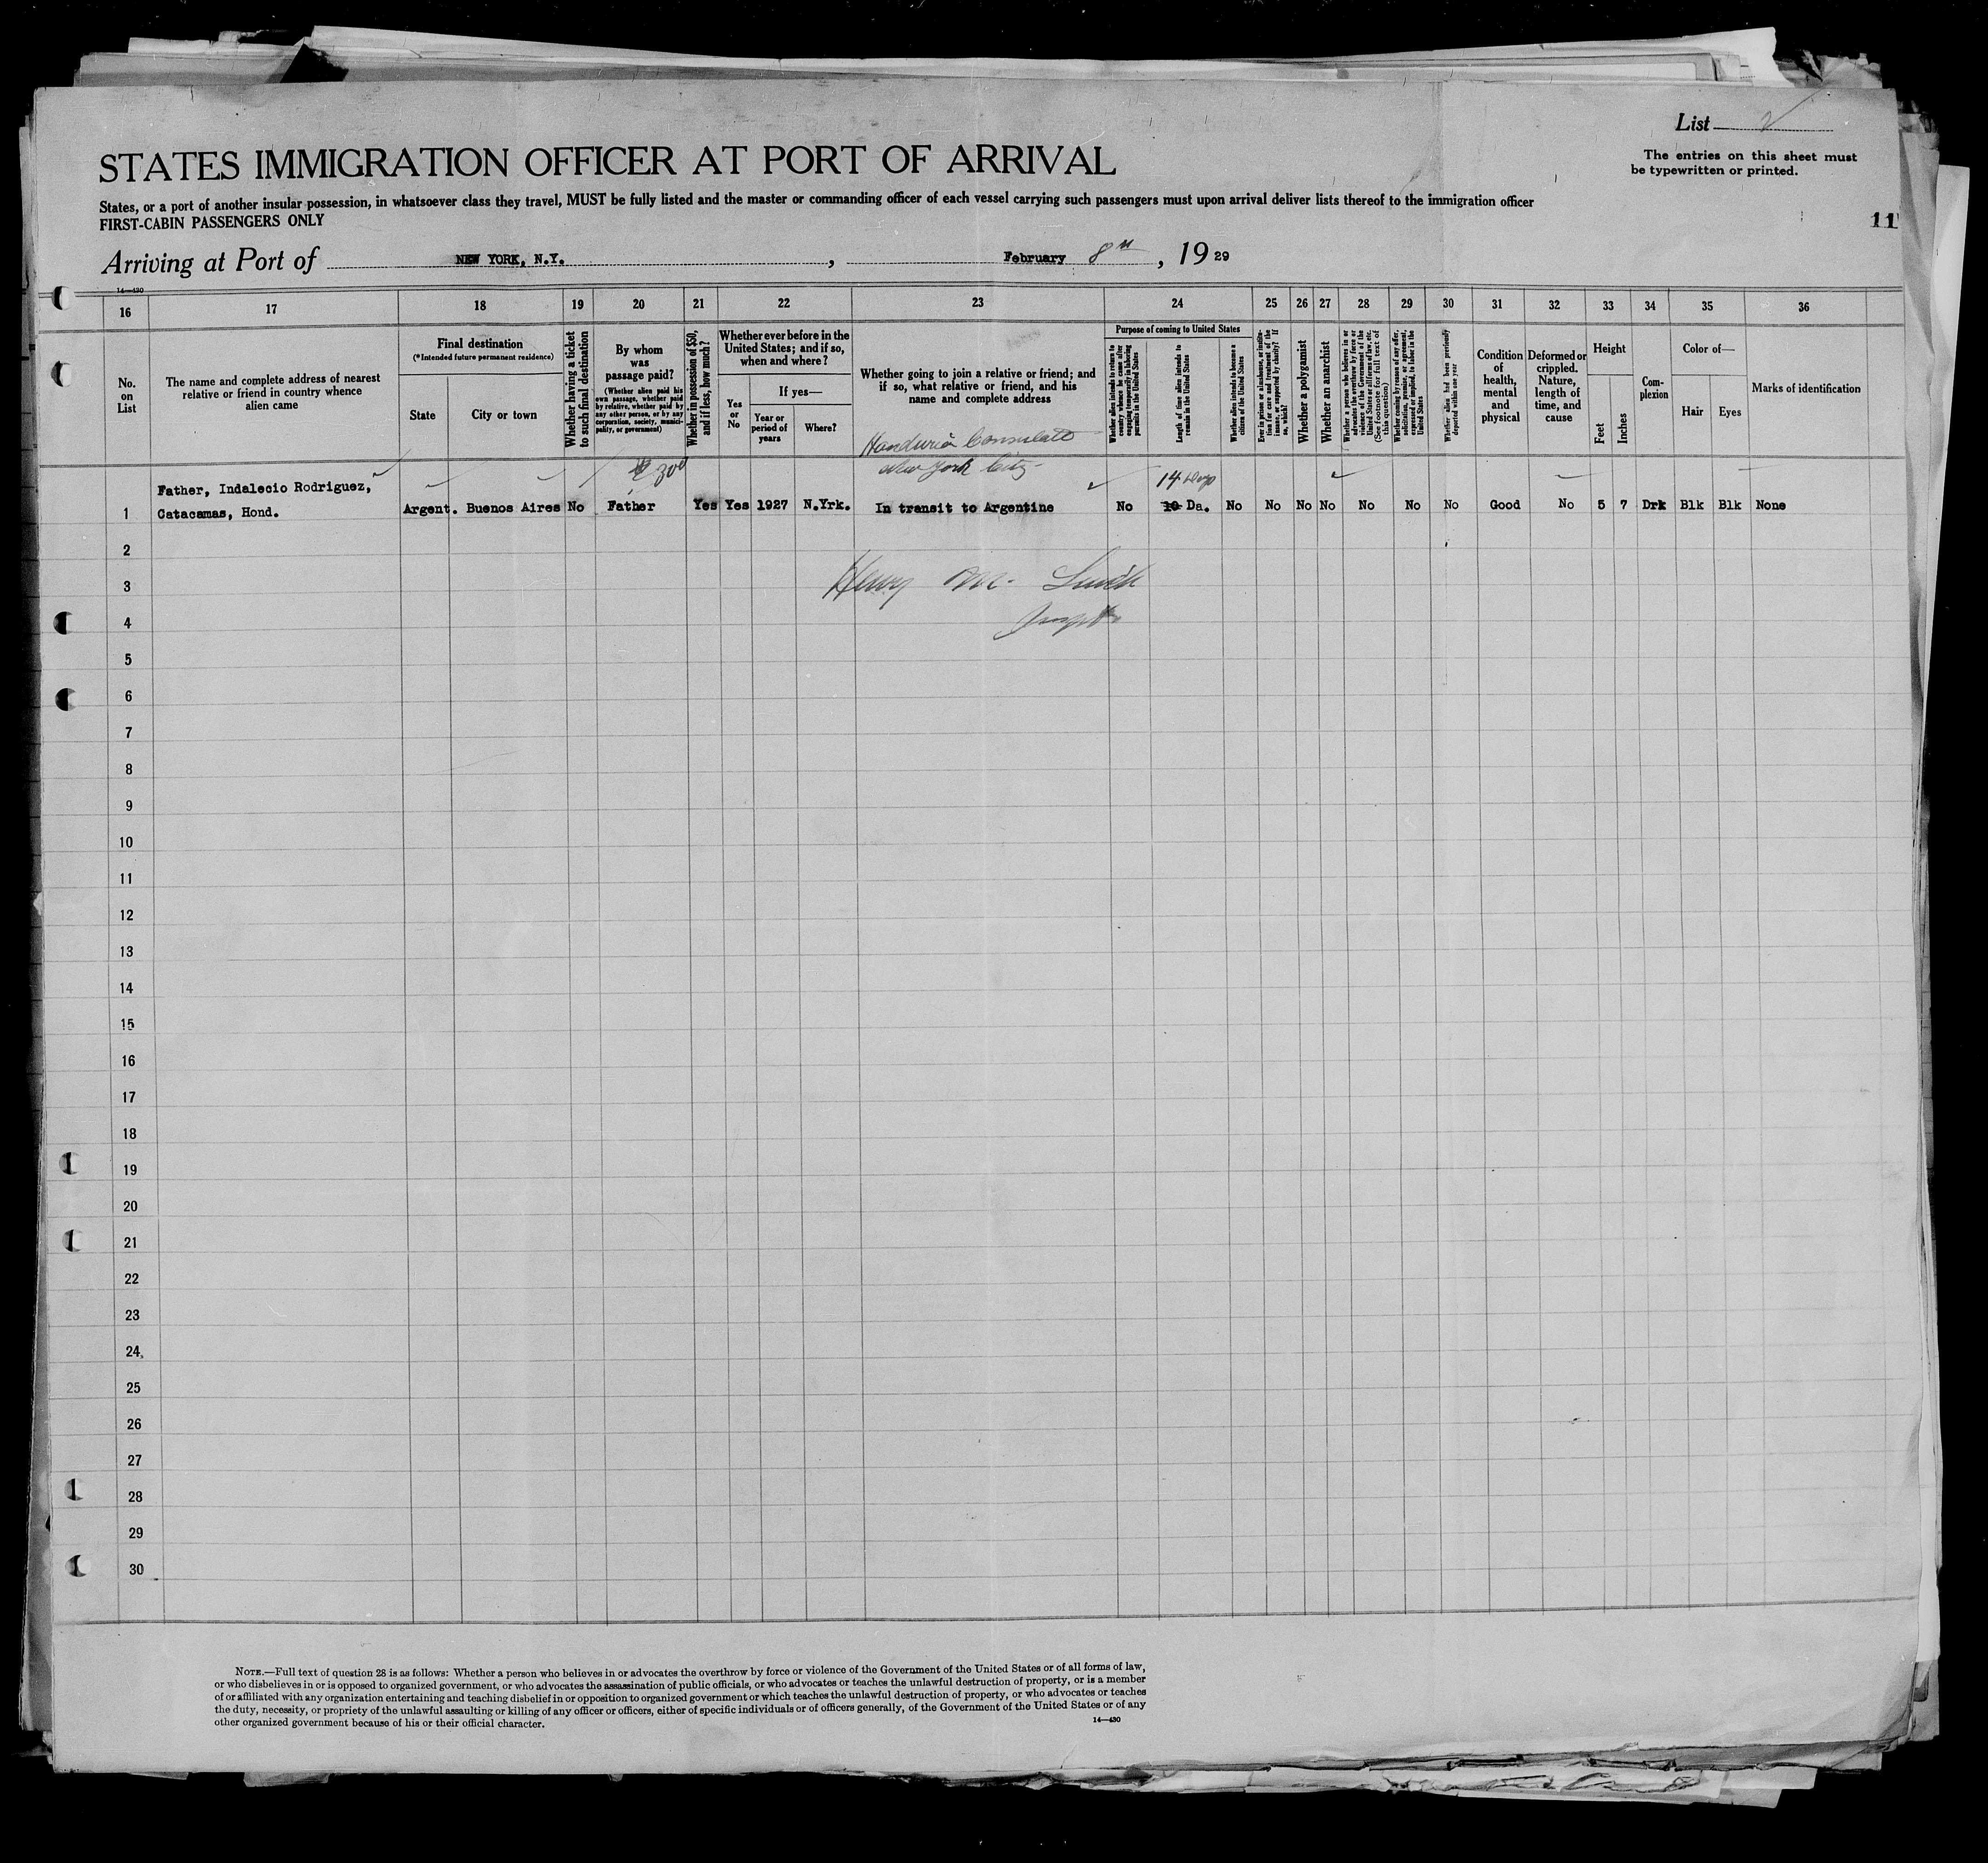 List 2
STATES IMMIGRATION OFFICER AT PORT OF ARRIVAL
The entries on this sheet must
be typewritten or printed.
States, or a port of another insular possession, in whatsoever class they travel, MUST be fully listed and the master or commanding officer of each vessel carrying such passengers must upon arrival deliver lists thereof to the immigration officer
FIRST-CABIN PASSENGERS ONLY
11
Arriving at Port of NEW YORK, N.Y. , February 8th , 19 29
14—430
16 17 18 19 20 21 22 23 24 25 26 27 28 29 30 31 32 33 34 35 36
No.
on
List
The name and complete address of nearest
relative or friend in country whence
alien came
Final destination
(*Intended future permanent residence)
State
City or town
Whether having a ticket
to such final destination
By whom
was
passage paid?
(Whether alien paid his
own passage, whether paid
by relative, whether paid by
any other person, or by any
corporation, society, munici-
pality, or government)
Whether in possession of $50,
and if less, how much?
Whether ever before in the
United States; and if so,
when and where?
Yes
or
No
If yes—
Year or
period of
years
Where?
Whether going to join a relative or friend; and
if so, what relative or friend, and his
name and complete address
Purpose of coming to United States
Whether alien intends to return to
country whence he came after
engaging temporarily in laboring
pursuits in the United States
Length of time alien intends to
remain in the United States
Whether alien intends to become a
citizen of the United States
Ever in prison or almshouse, or institu-
tion for care and treatment of the
insane, or supported by charity? If
so, which?
Whether a polygamist
Whether an anarchist
Whether a person who believes in or
advocates the overthrow by force or
violence of the Government of the
United States or all forms of law, etc.
(See footnote for full text of
this question)
Whether coming by reason of any offer,
solicitation, promise, or agreement,
expressed or implied, to labor in the
United States
Whether alien had been previously
deported within one year
Condition
of
health,
mental
and
physical
Deformed or
crippled.
Nature,
length of
time, and
cause
Height
Feet
Inches
Com-
plexion
Color of—
Hair
Eyes
Marks of identification
Honduria Consulate
New York City
$300
14 days
Father, Indalecio Rodriguez,
1 Catacamas, Hond. Argent. Buenos Aires No Father Yes Yes 1927 N.Yrk. In transit to Argentine No 10 Da. No No No No No No No Good No 5 7 Drk Blk Blk None
2
3 Henry M.
4
5
6
7
8
9
10
11
12
13
14
15
16
17
18
19
20
21
22
23
24
25
26
27
28
29
30
NOTE.—Full text of question 28 is as follows: Whether a person who believes in or advocates the overthrow by force or violence of the Government of the United States or of all forms of law,
or who disbelieves in or is opposed to organized government, or who advocates the assassination of public officials, or who advocates or teaches the unlawful destruction of property, or is a member
of or affiliated with any organization entertaining and teaching disbelief in or opposition to organized government or which teaches the unlawful destruction of property, or who advocates or teaches
the duty, necessity, or propriety of the unlawful assaulting or killing of any officer or officers, either of specific individuals or of officers generally, of the Government of the United States or of any
other organized government because of his or their official character.
14—430